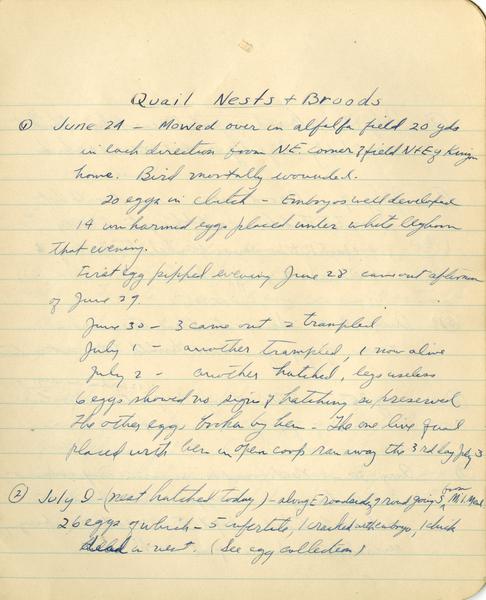 Quail Nests + Broods
① June 24 - Mowed over in alfalfa field 20 yds
in each direction from N.E. corner of field N+E of
home. Bird mortally wounded.
20 eggs in clutch - Embryos well developed
14 unharmed eggs placed under white leghorn
that evening.
First egg pipped evening June 28 came out afternoon
of June 29
June 30 - 3 came out 2 trampled
July 1 - another trampled, 1 now alive
July 2 - another hatched, legs useless
6 eggs showed no signs of hatching so preserved
The other eggs broken by hen - The one live quail
placed with hen in open coop ran away the 3rd day July 3
② July 9 - (nest hatched today) - along E roadside of road going S from Mill
26 eggs of which - 5 infertile, 1 cracked with embryo, 1 chick
dead in nest. (See egg collection)